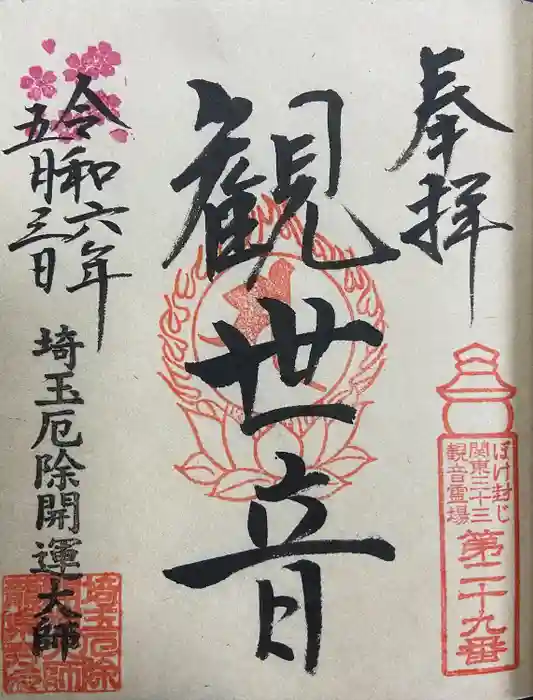 奉拝
ぼけ封じ
関東三十三
観音霊場
第二十九番
観世音
令和六年
五月三日
埼玉厄除開運大師